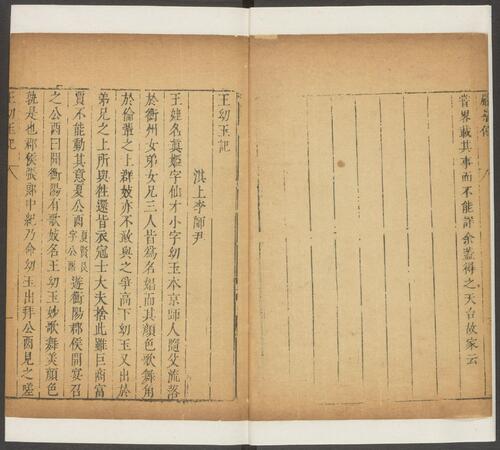 嘗界載其事而不能詳余蓋得之天台故家云
王幼玉記
淇上李師尹
王姓名眞姬字仙才小字幼玉本京師人隨父流落
於衡州女弟女兄三人皆爲名娼而其顏色歌舞角
於倫輩之上群妓亦不敢與之爭高下幼玉又出於
弟兄之上所與往還皆衣冠士大夫捨此雖巨商富
賈不能動其意夏公酉夏賢良字公酉遊衡陽郡侯開宴召
之公酉曰聞衡陽有歌妓名王幼玉妙歌舞美顏色
孰是也郡侯張郎中紀乃命幼玉出拜公酉見之嗟
王幼玉記